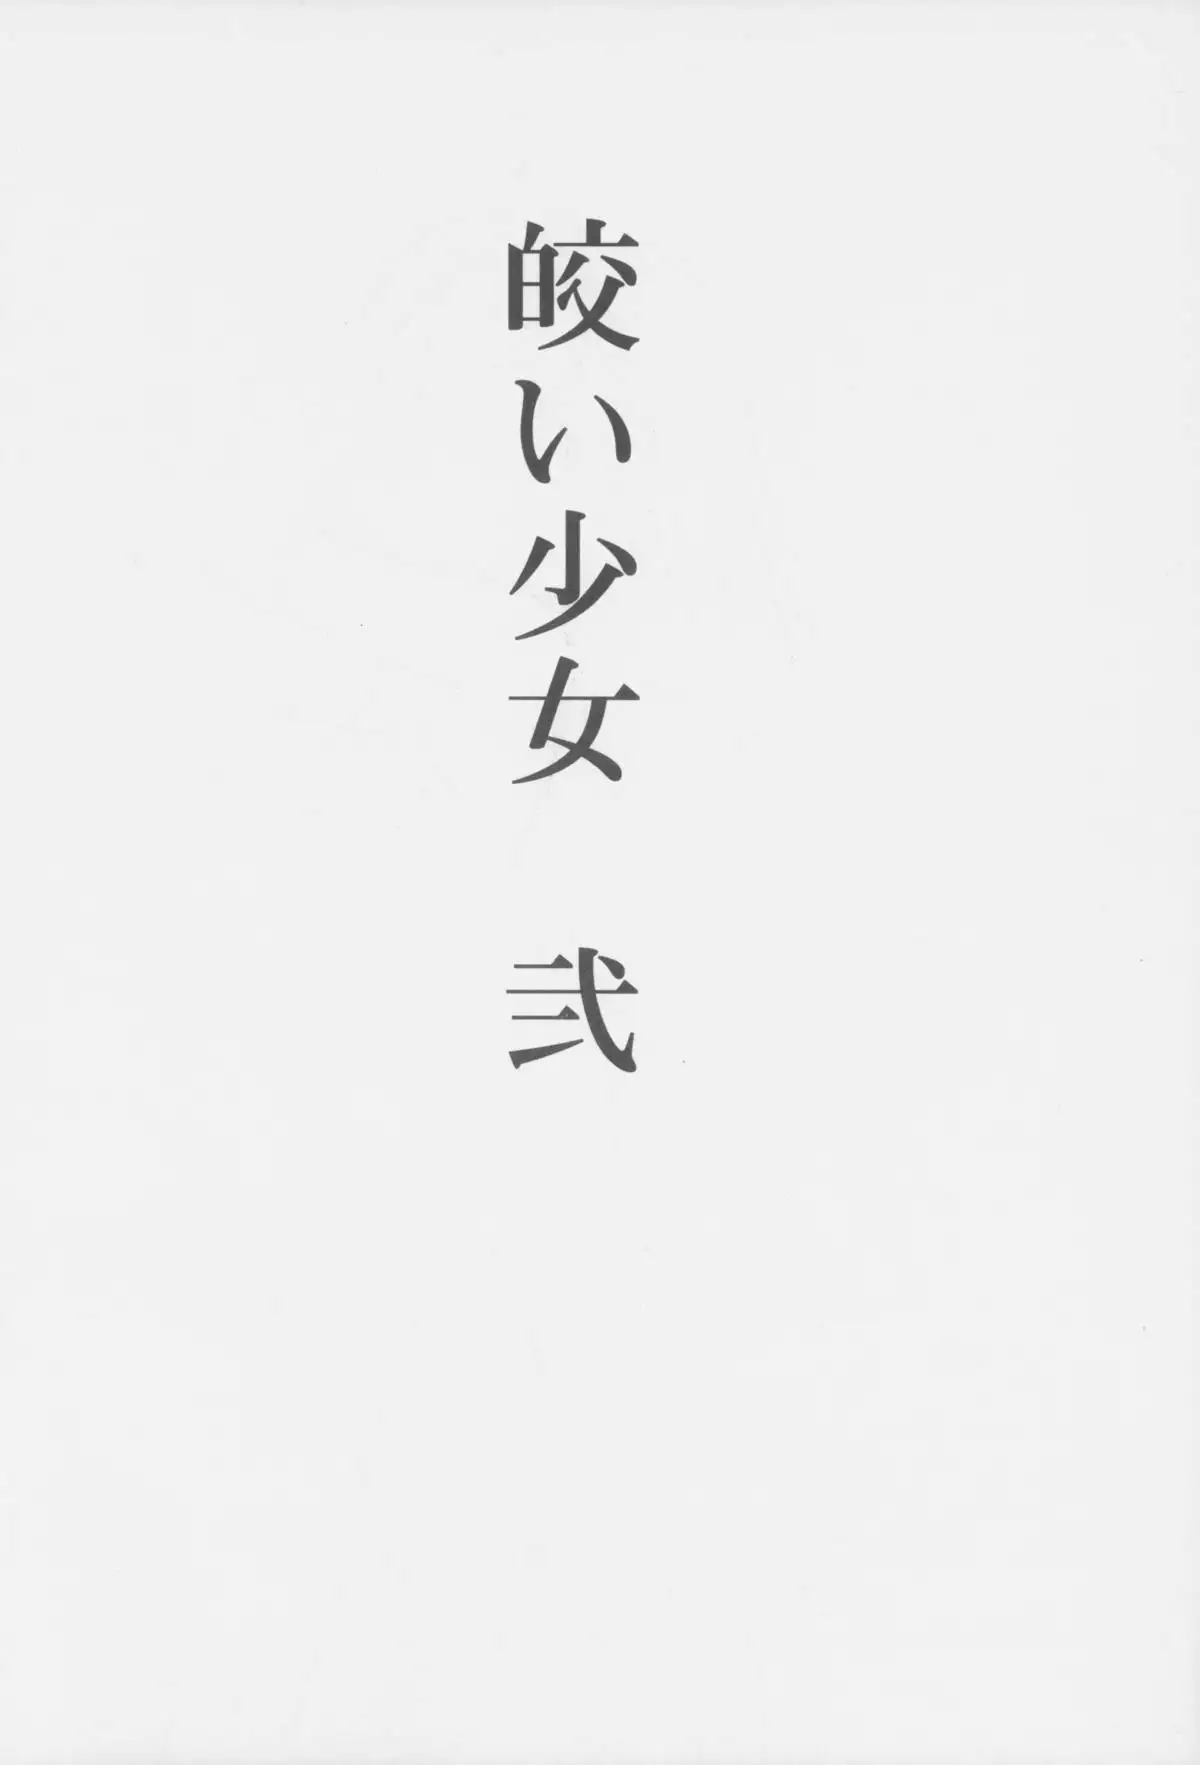 皎い少女 弐